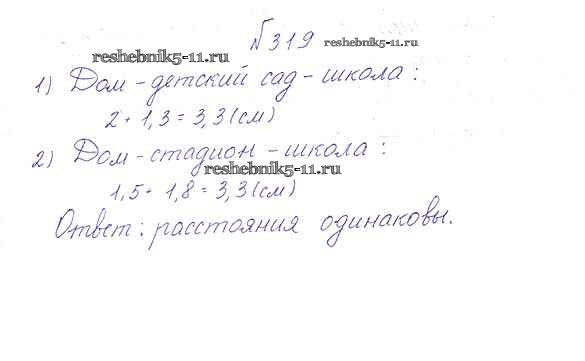 №319 reshebnik5-11.ru
reshebnik5-11.ru
1) Дом - детский сад - школа:
2 + 1,3 = 3,3 (см)
2) Дом - стадион - школа:
reshebnik5-11.ru
1,5 + 1,8 = 3,3 (см)
Ответ: расстояния одинаковы.